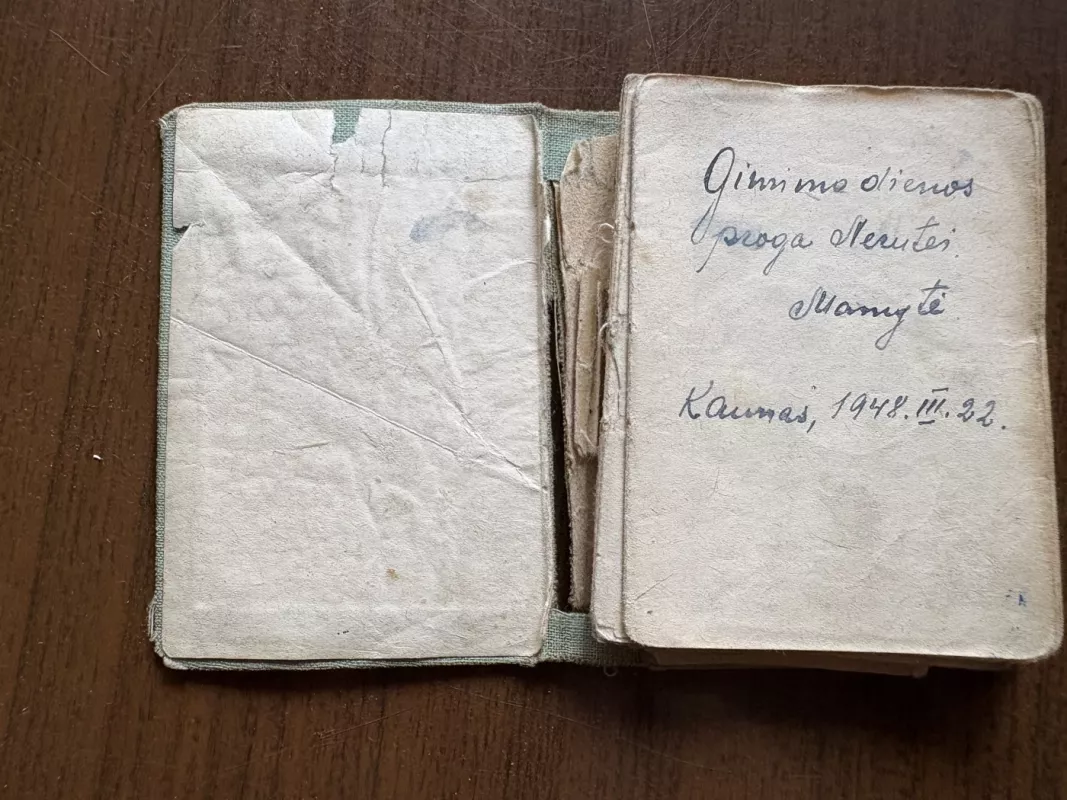 Gimimo dienos
proga Nerutei.
Mamytė
Kaunas, 1948.III.22.